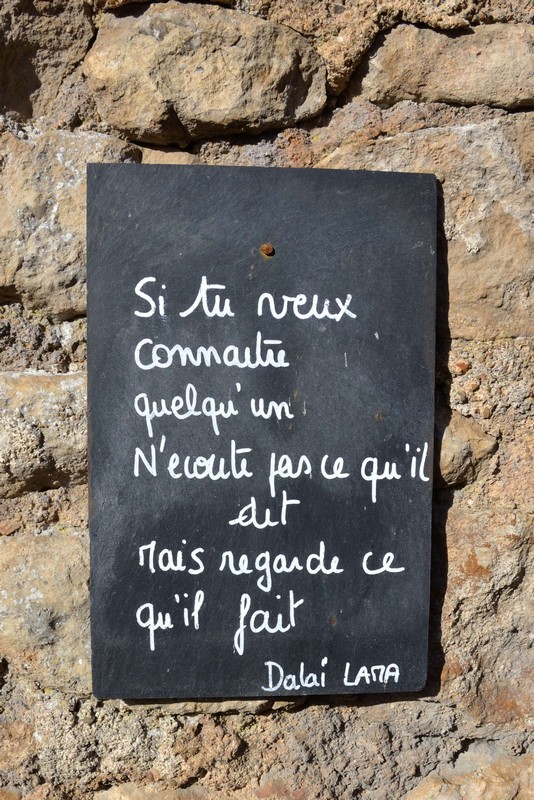 Si tu veux
connaitre
quelqu'un
N'écoute pas ce qu'il
dit
Mais regarde ce
qu'il fait
Dalaï LAMA